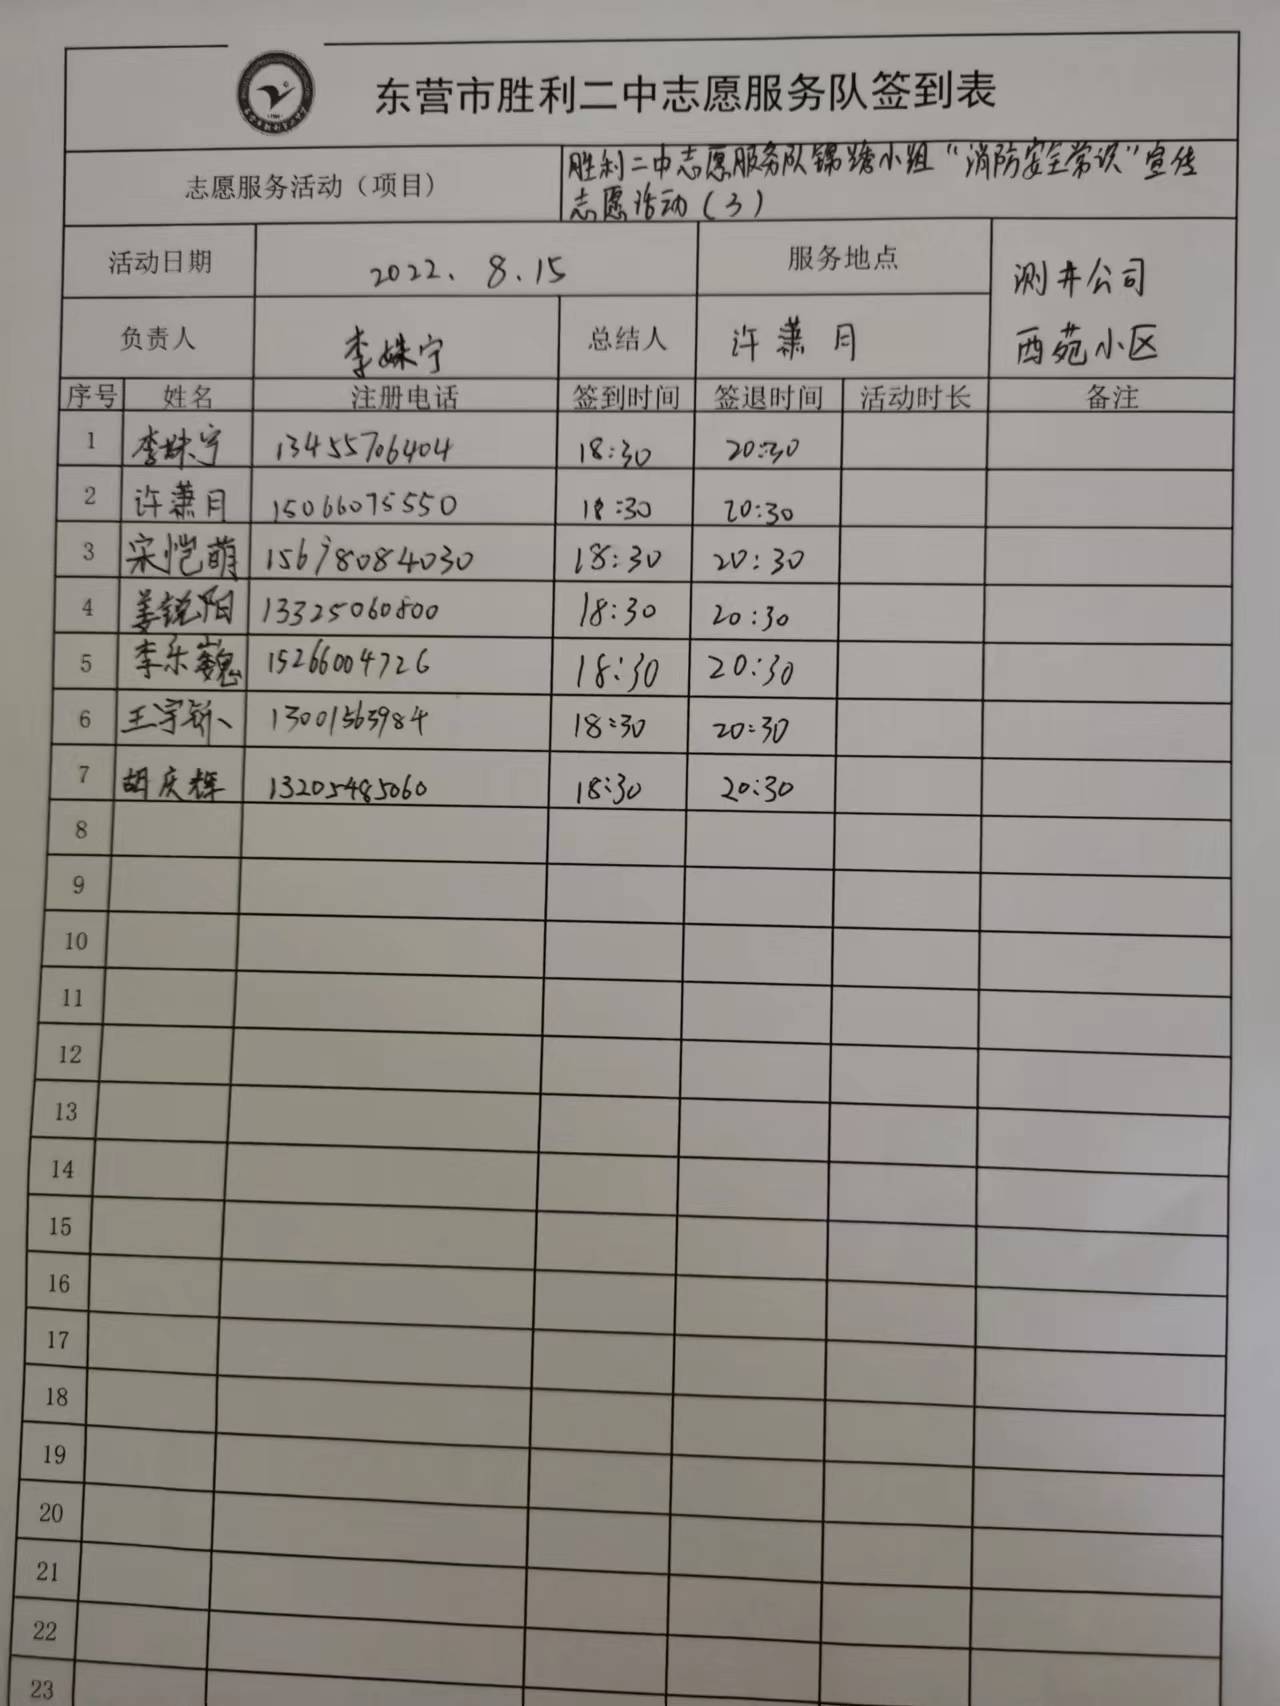 东营市胜利二中志愿服务队签到表
志愿服务活动（项目） 胜利二中志愿服务队锦绣小组“消防安全常识”宣传
志愿活动（3）
活动日期 2022.8.15 服务地点 测井公司
西苑小区
负责人 李姝宁 总结人 许萧月
序号 姓名 注册电话 签到时间 签退时间 活动时长 备注
1 李姝宁 13455706404 18:30 20:30
2 许萧月 15066075550 18:30 20:30
3 宋恺萌 18:30 20:30
4 姜锐阳 13325060800 18:30 20:30
5 李乐巍 15266004726 18:30 20:30
6 王宇 13001563984 18:30 20:30
7 胡庆辉 13205485060 18:30 20:30
8
9
10
11
12
13
14
15
16
17
18
19
20
21
22
23